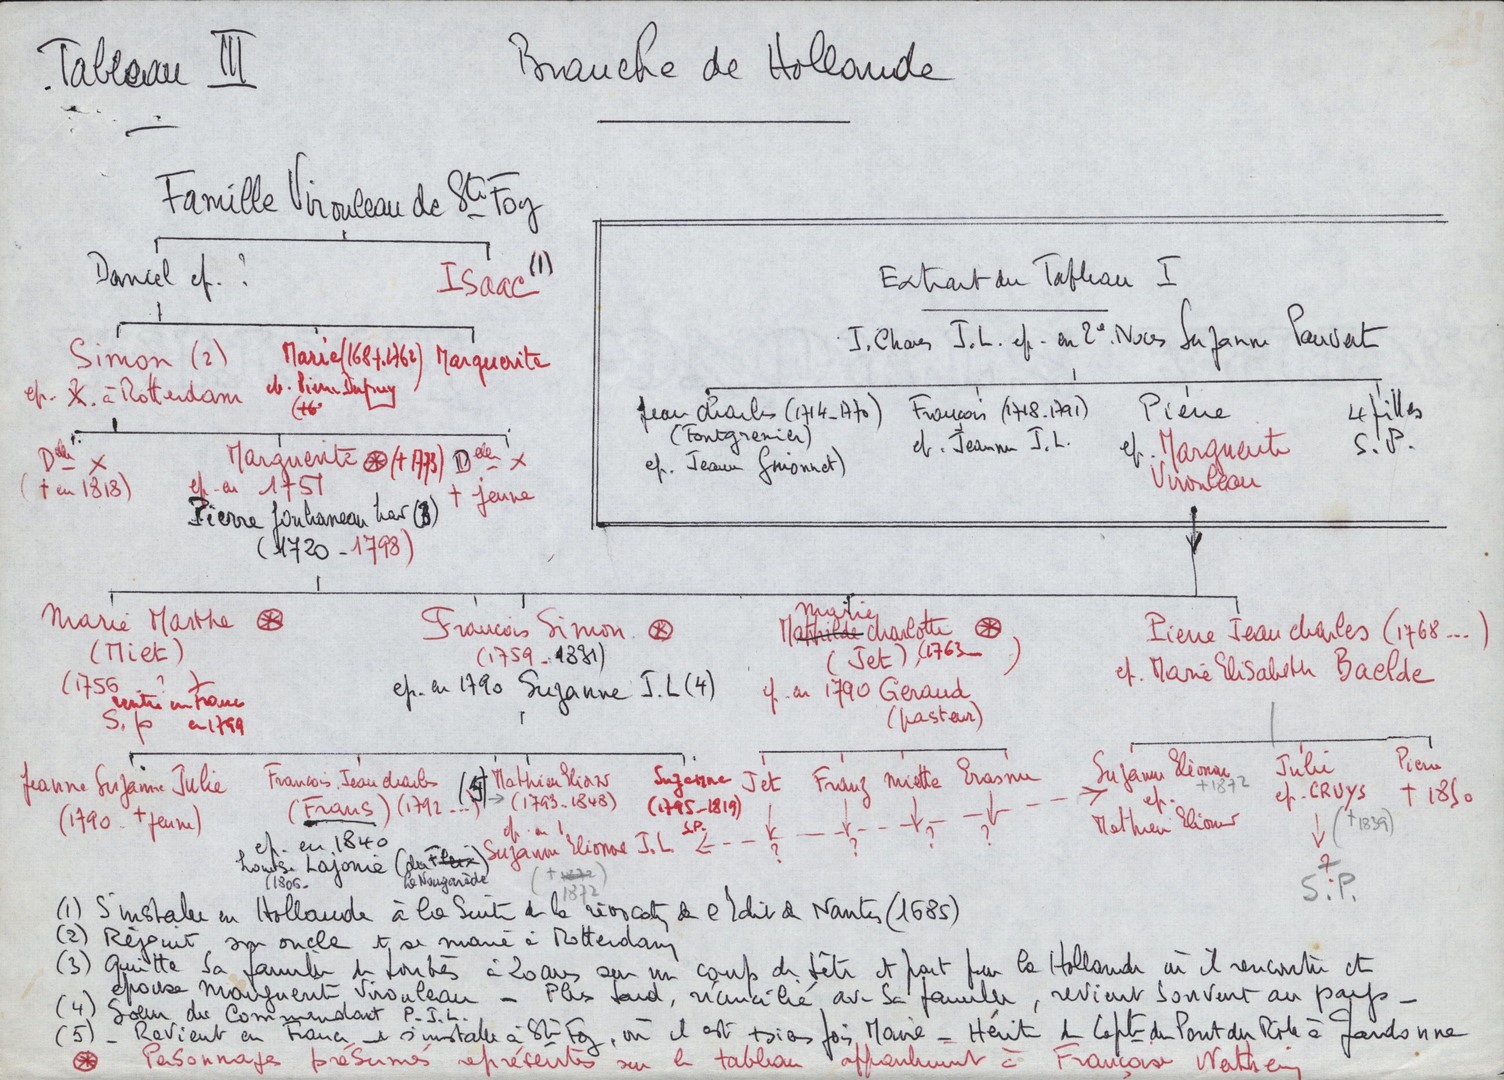 Tableau III
Branche de Hollande
Famille Virouleau de Ste Foy
Daniel ep. ?
Isaac (1)
Simon (2)
ep. X. à Rotterdam
Marie (168 +.1762)
Marguerite
eb. Pierre Dupuy
Delle X
(+ en 1818)
Marguerite ⊛ (+ 1773)
ep. en 1751
Pierre (3)
(1720 - 1798)
Delle X
+ jeune
Extrait du Tableau I
I. Chares J.L. ep. en 2e Noces Suzanne Pauvert
Jean Charles (1714-1770)
(Fontgrenier)
ep. Jeanne Guionnet)
François (1718-1791)
ep. Jeanne J.L.
Pierre
ep. Marguerite
Virouleau
4 filles
S.P.
Marie Marthe ⊛
(Miet)
(1756 ?
rentrée en France
S.p en 1799
François Simon ⊛
(1759 - 1831)
ep. en 1790 Suzanne J.L (4)
Marie
Mathilde charlotte ⊛
(Jet) (1763 )
ep. en 1790 Geraud
(pasteur)
Pierre Jean charles (1768 ... )
ep. Marie Elisabeth Baelde
Jeanne Suzanne Julie
(1790 - + jeune)
François Jean charles (5)
(Frans) (1792 ...)
ep. en 1840
Louise Lajonie
(1806-
Mathieu Elionor
(1793-1848)
ep.
Suzanne Elionore J.L
(+ 1872
Suzanne
(1795-1819)
S.P.
Jet
Franz
miette
Erasme
? ? ? ?
Suzanne Elionore
+1872
ep.
Mathieu Elionor
Julie
ep. CRUYS
(+1839)
?
S.P.
Pierre
+ 1850
(1) S'installe en Hollande à la Suite de la révocation de l'Edit de Nantes (1685)
(2) Rejoint son oncle et se marie à Rotterdam
(3) Quitte Sa famille de à 20 ans sur un coup de tête et part pour la Hollande où il rencontre et
épouse Marguerite Virouleau - Plus tard, réconcilié avec Sa famille, revient souvent au pays -
(4) Soeur du Commandant P.J.L.
(5) - Revient en France et s'installe à Ste Foy, où il est trois fois Maire - Hérite de du Pont de la à Gardonne
⊛ Personnages présumés représentés sur le tableau appartenant à Françoise